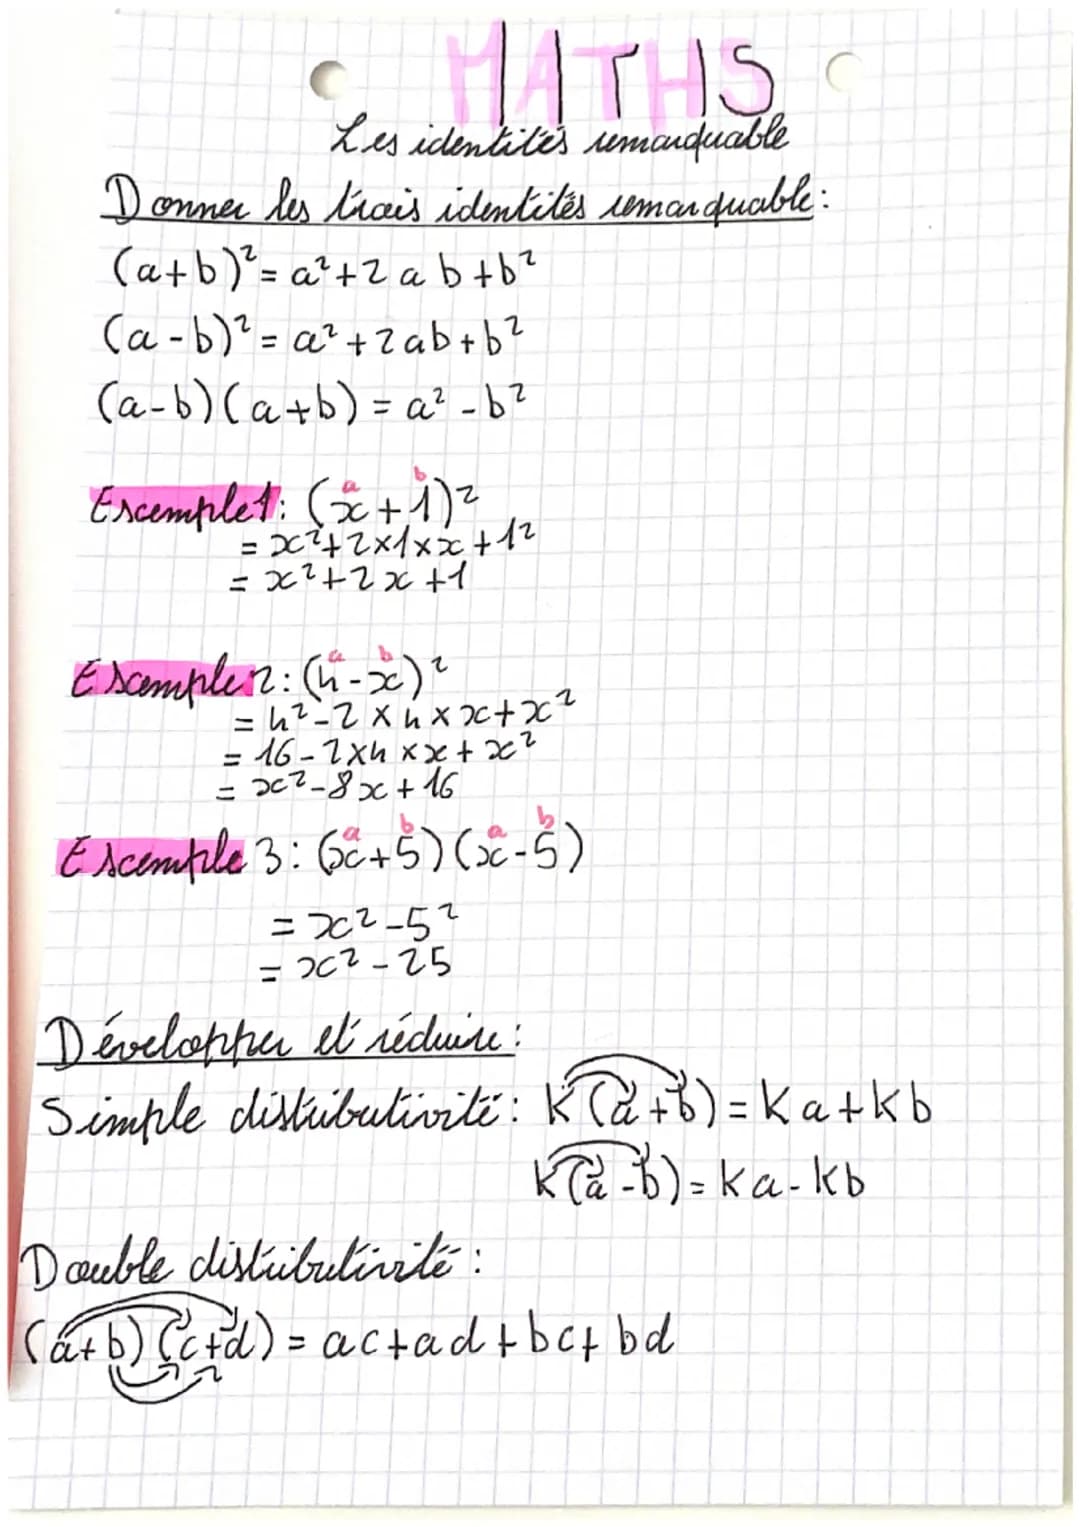 MATHS
Les identités remarquable
Donner les trois identités remarquable:
(a+b)²= a²+2 a b +b²
(a-b)²= a²+2ab+b²
(a-b)(a+b) = a² -b²
a b
Exemple1: (x+1)²
= x²+2×1×x+1²
= x²+2x+1
a b
Exemple2: (4-x)²
= 4²-2×4×x+x²
= 16-2×4×x+x²
= x²-8x+16
a b a b
Exemple 3: (x+5)(x-5)
= x²-5²
= x²-25
Développer et réduire:
Simple distributivité: K(a+b)=Ka+Kb
K(a-b)=Ka-Kb
Double distributivité:
(a+b)(c+d)= ac+ad+bc+bd